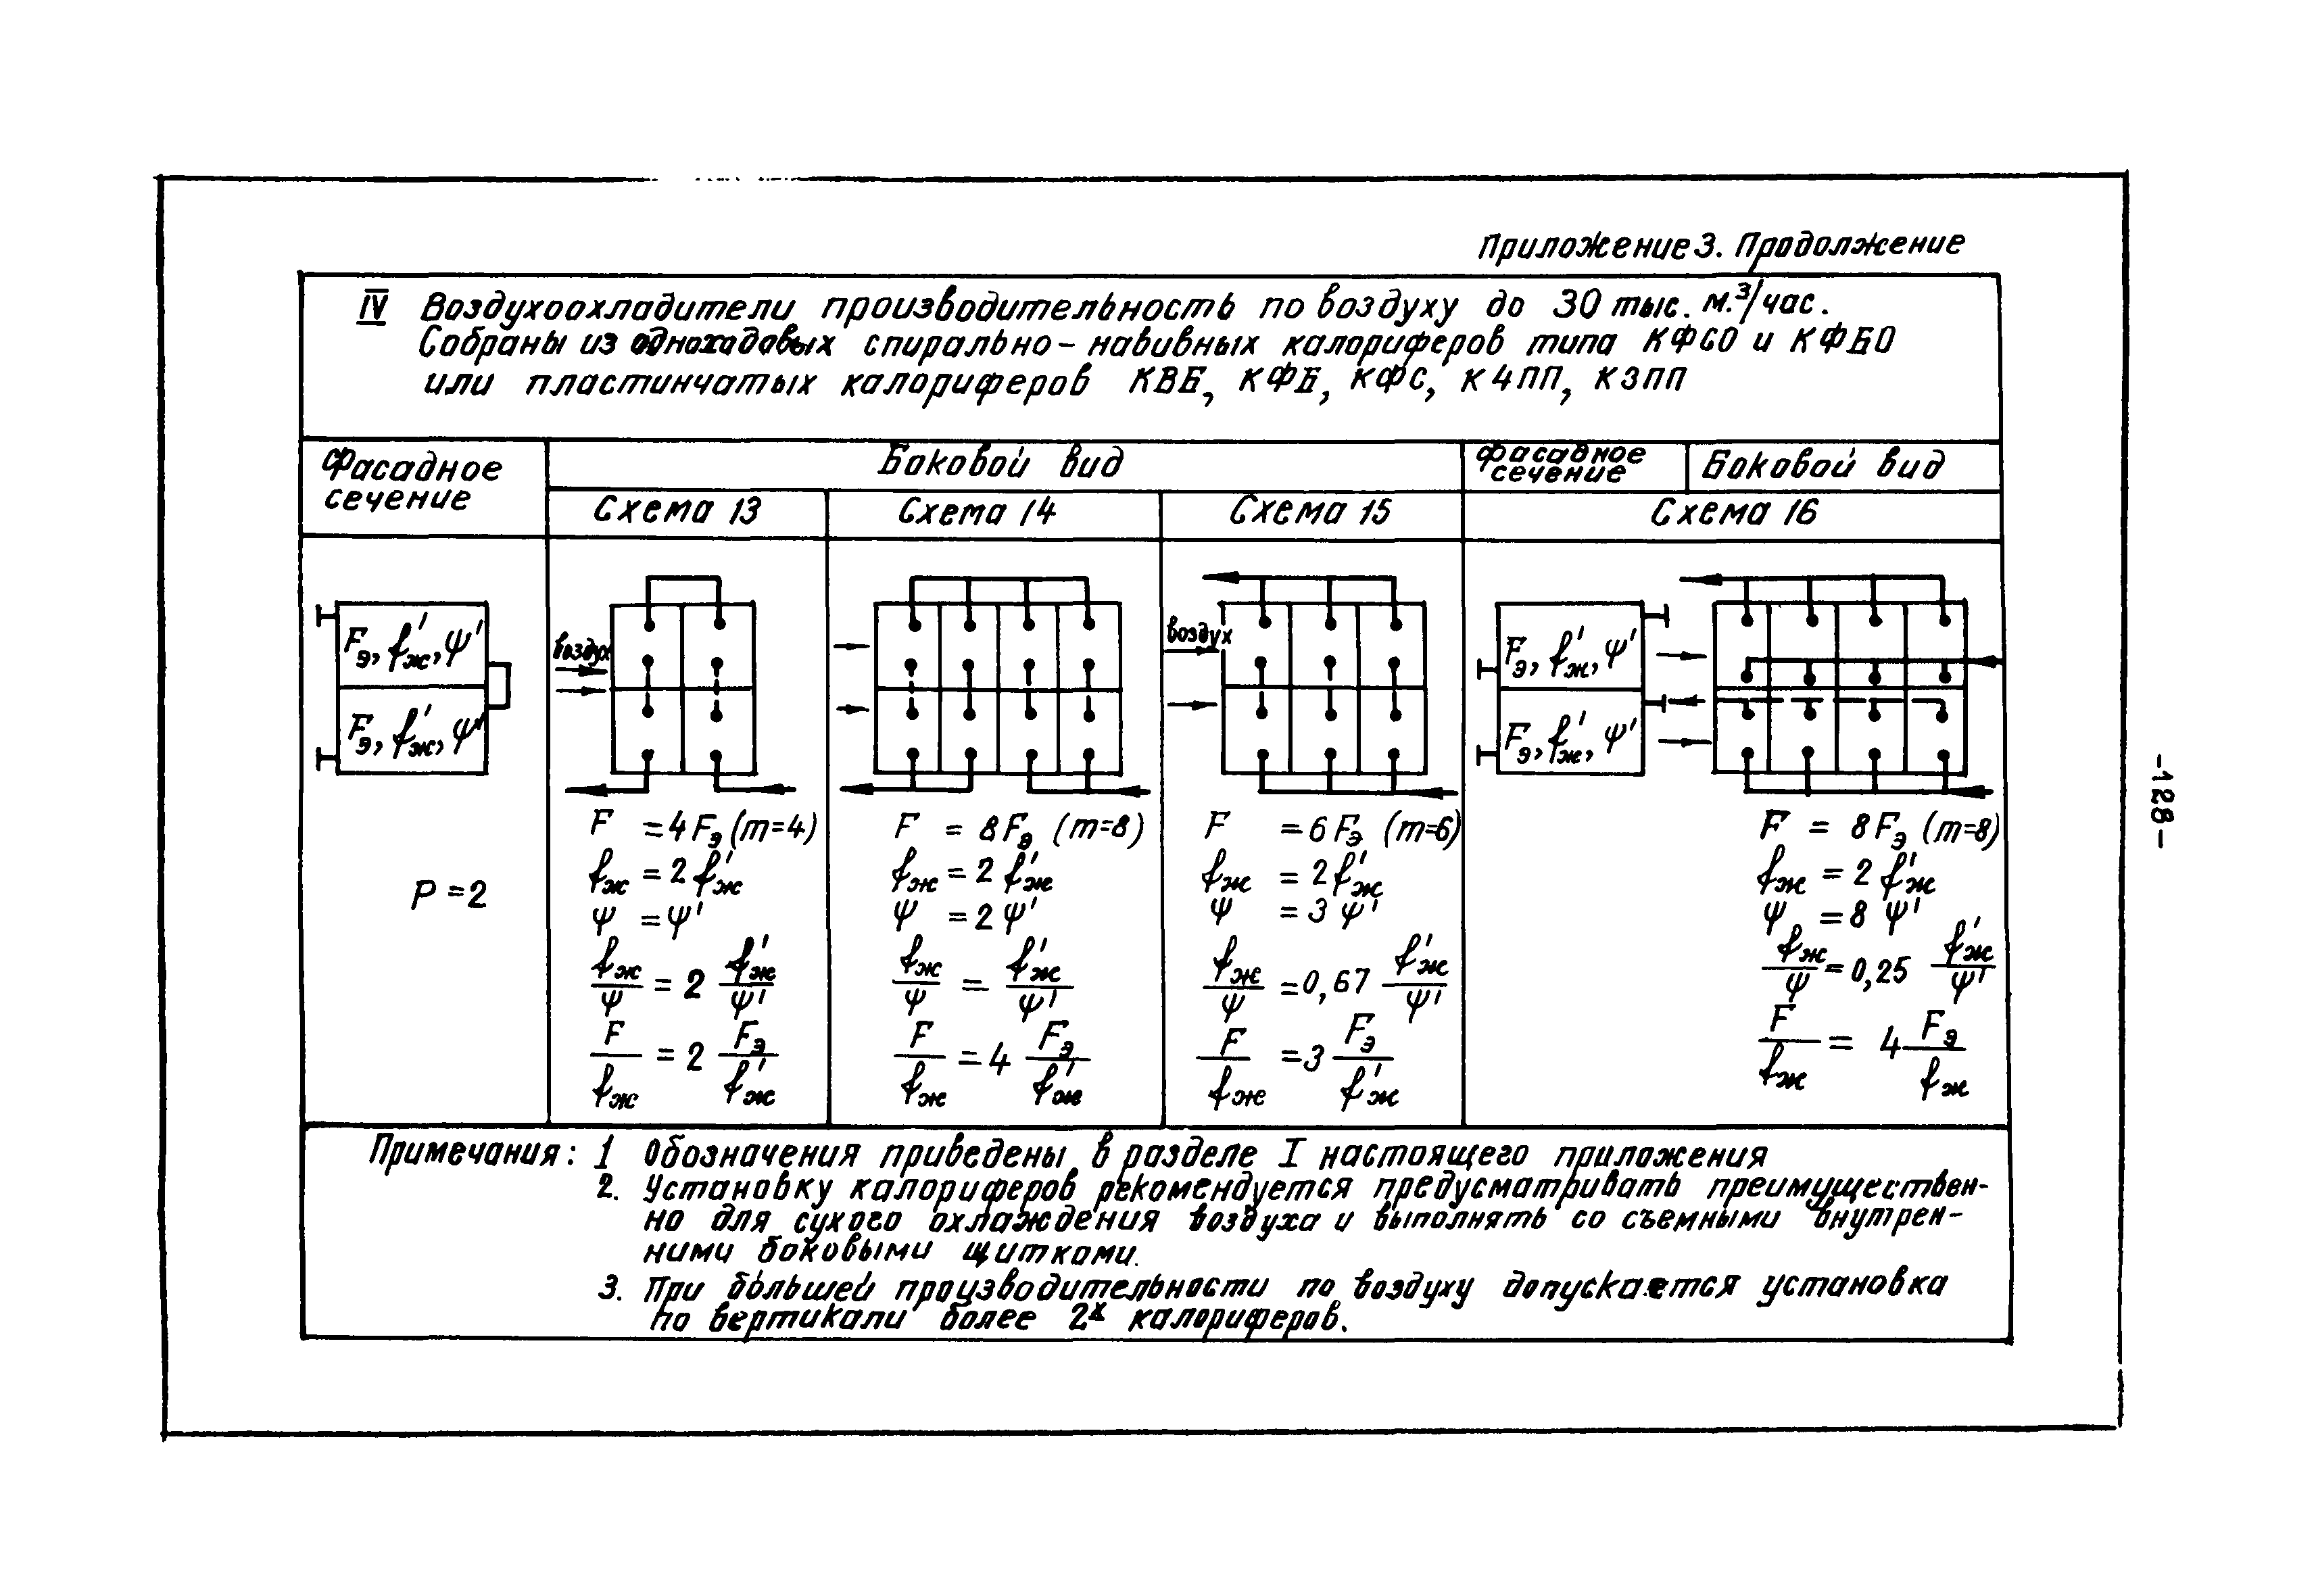 Приложение 3. Продолжение
IV Воздухоохладители производительность по воздуху до 30 тыс. м.³/час.
Собраны из одноходовых спирально-навивных калориферов типа КФСО и КФБО
или пластинчатых калориферов КВБ, КФБ, КФС, К4ПП, К3ПП
Фасадное сечение
Боковой вид
Фасадное сечение
Боковой вид
Схема 13
Схема 14
Схема 15
Схема 16
Fэ, fж', ψ'
Fэ, fж', ψ'
P = 2
воздух
F = 4 Fэ (m=4)
fж = 2 fж'
ψ = ψ'
fж/ψ = 2 fж'/ψ'
F/fж = 2 Fэ/fж'
F = 8 Fэ (m=8)
fж = 2 fж'
ψ = 2 ψ'
fж/ψ = fж'/ψ'
F/fж = 4 Fэ/fж'
воздух
F = 6 Fэ (m=6)
fж = 2 fж'
ψ = 3 ψ'
fж/ψ = 0,67 fж'/ψ'
F/fж = 3 Fэ/fж'
Fэ, fж', ψ'
Fэ, fж', ψ'
F = 8 Fэ (m=8)
fж = 2 fж'
ψ = 8 ψ'
fж/ψ = 0,25 fж'/ψ'
F/fж = 4 Fэ/fж
Примечания: 1 Обозначения приведены в разделе I настоящего приложения
2. Установку калориферов рекомендуется предусматривать преимуществен-
но для сухого охлаждения воздуха и выполнять со съемными внутрен-
ними боковыми щитками.
3. При большей производительности по воздуху допускается установка
по вертикали более 2х калориферов.
-128-